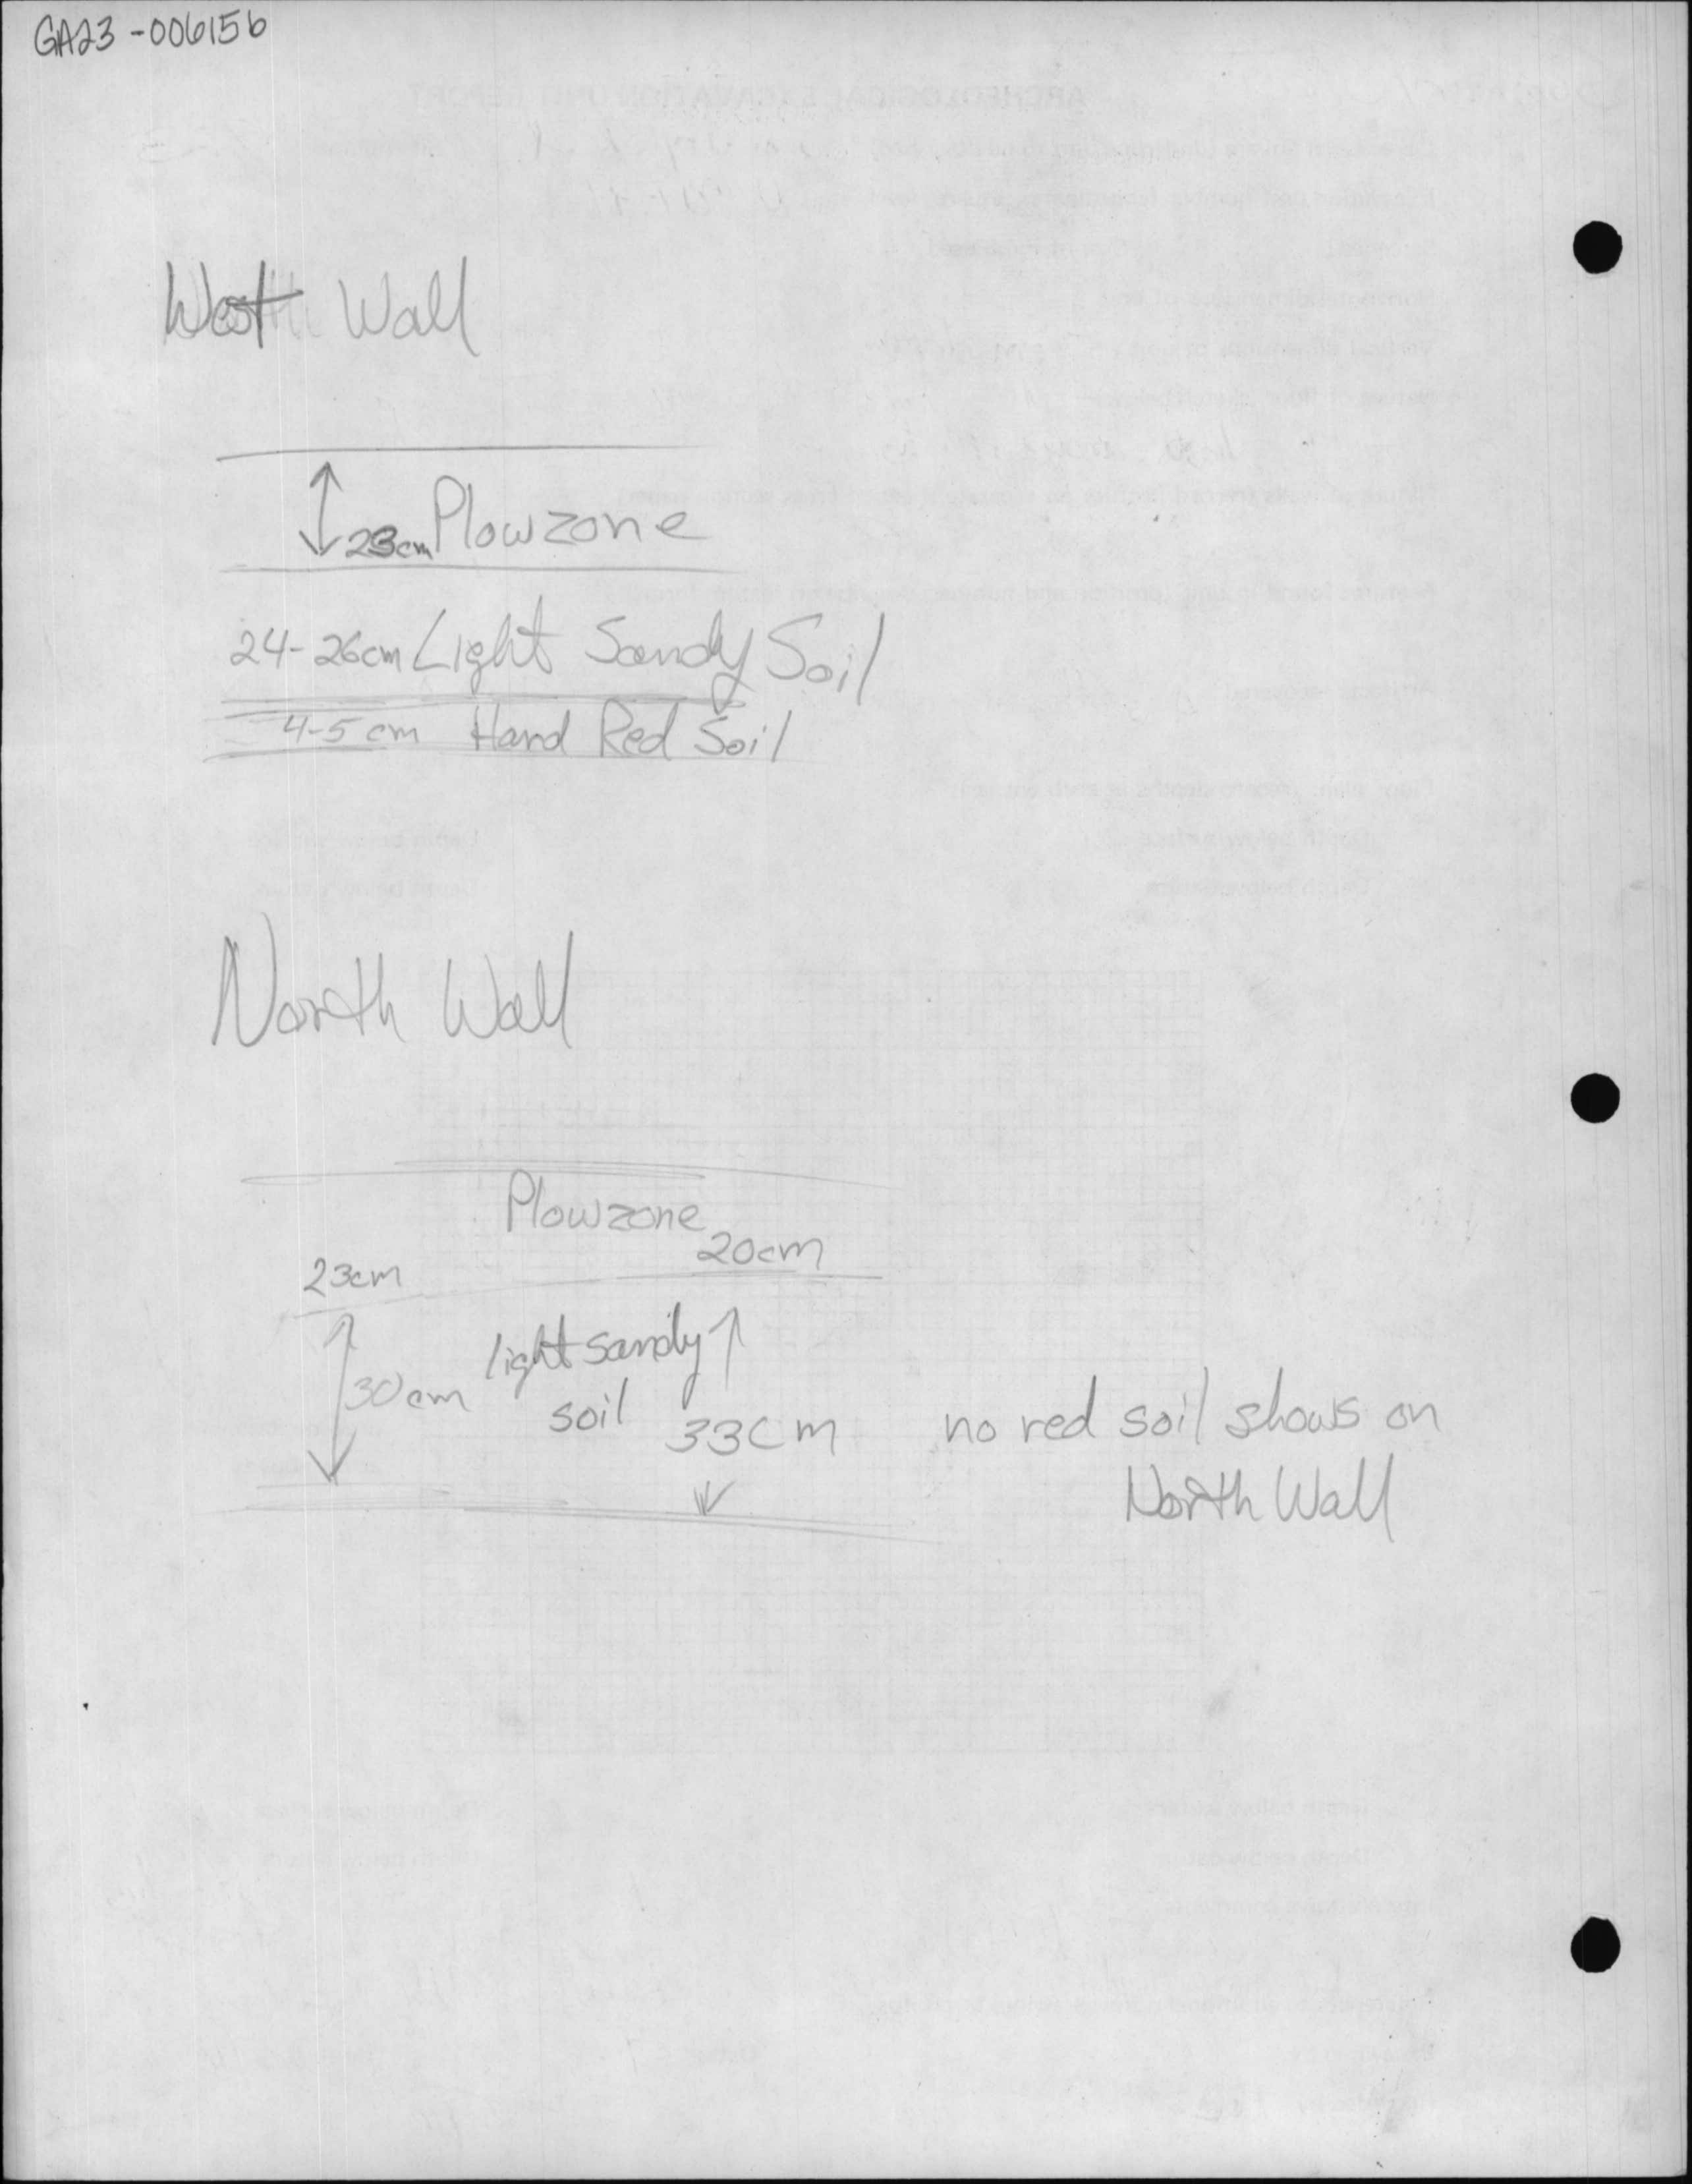 GA23-006156
West Wall
23cm Plowzone
24-26cm Light Sandy Soil
4-5 cm Hard Red Soil
North Wall
Plowzone
20cm
23cm
light sandy
30cm
soil
33cm
no red soil shows on
North Wall